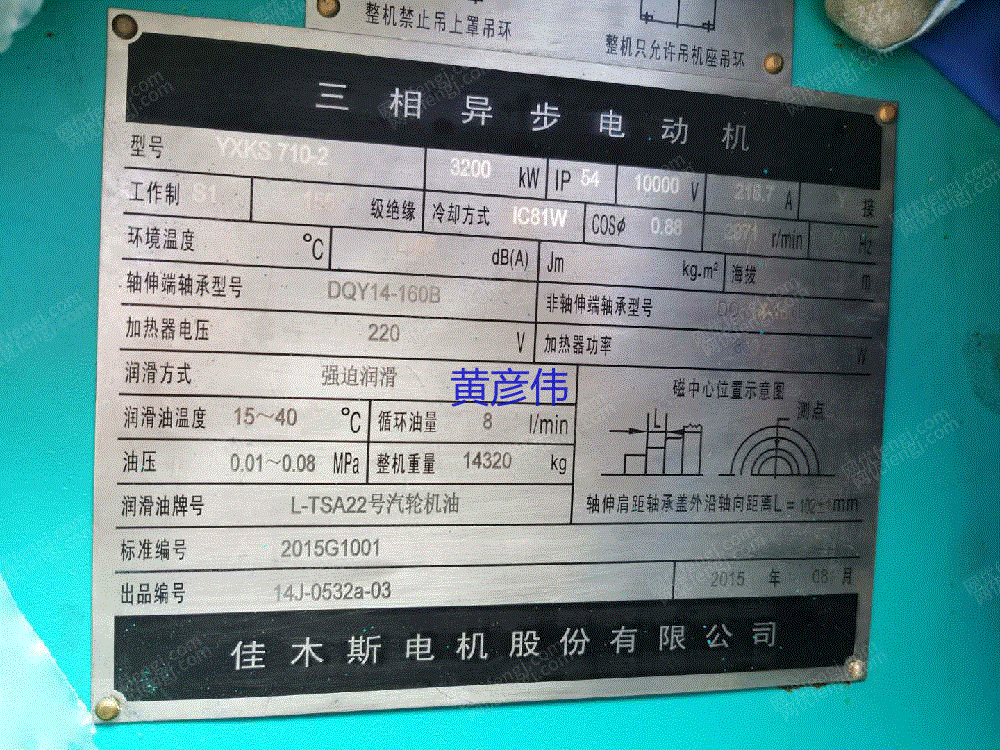 整机禁止吊上罩吊环
整机只允许吊机座吊环
三相异步电动机
型号 YXKS 710-2 3200 kW IP 54 10000 V 216.7 A 接
工作制 S1 级绝缘 冷却方式 IC81W COSφ 0.88 2971 r/min Hz
环境温度 ℃ dB(A) Jm kg.m² 海拔 m
轴伸端轴承型号 DQY14-160B 非轴伸端轴承型号
加热器电压 220 V 加热器功率 W
润滑方式 强迫润滑 黄彦伟 磁中心位置示意图
测点
L
润滑油温度 15~40 ℃ 循环油量 8 l/min
油压 0.01~0.08 MPa 整机重量 14320 kg
润滑油牌号 L-TSA22号汽轮机油 轴伸肩距轴承盖外沿轴向距离L = mm
标准编号 2015G1001
出品编号 14J-0532a-03 2015 年 08 月
佳木斯电机股份有限公司